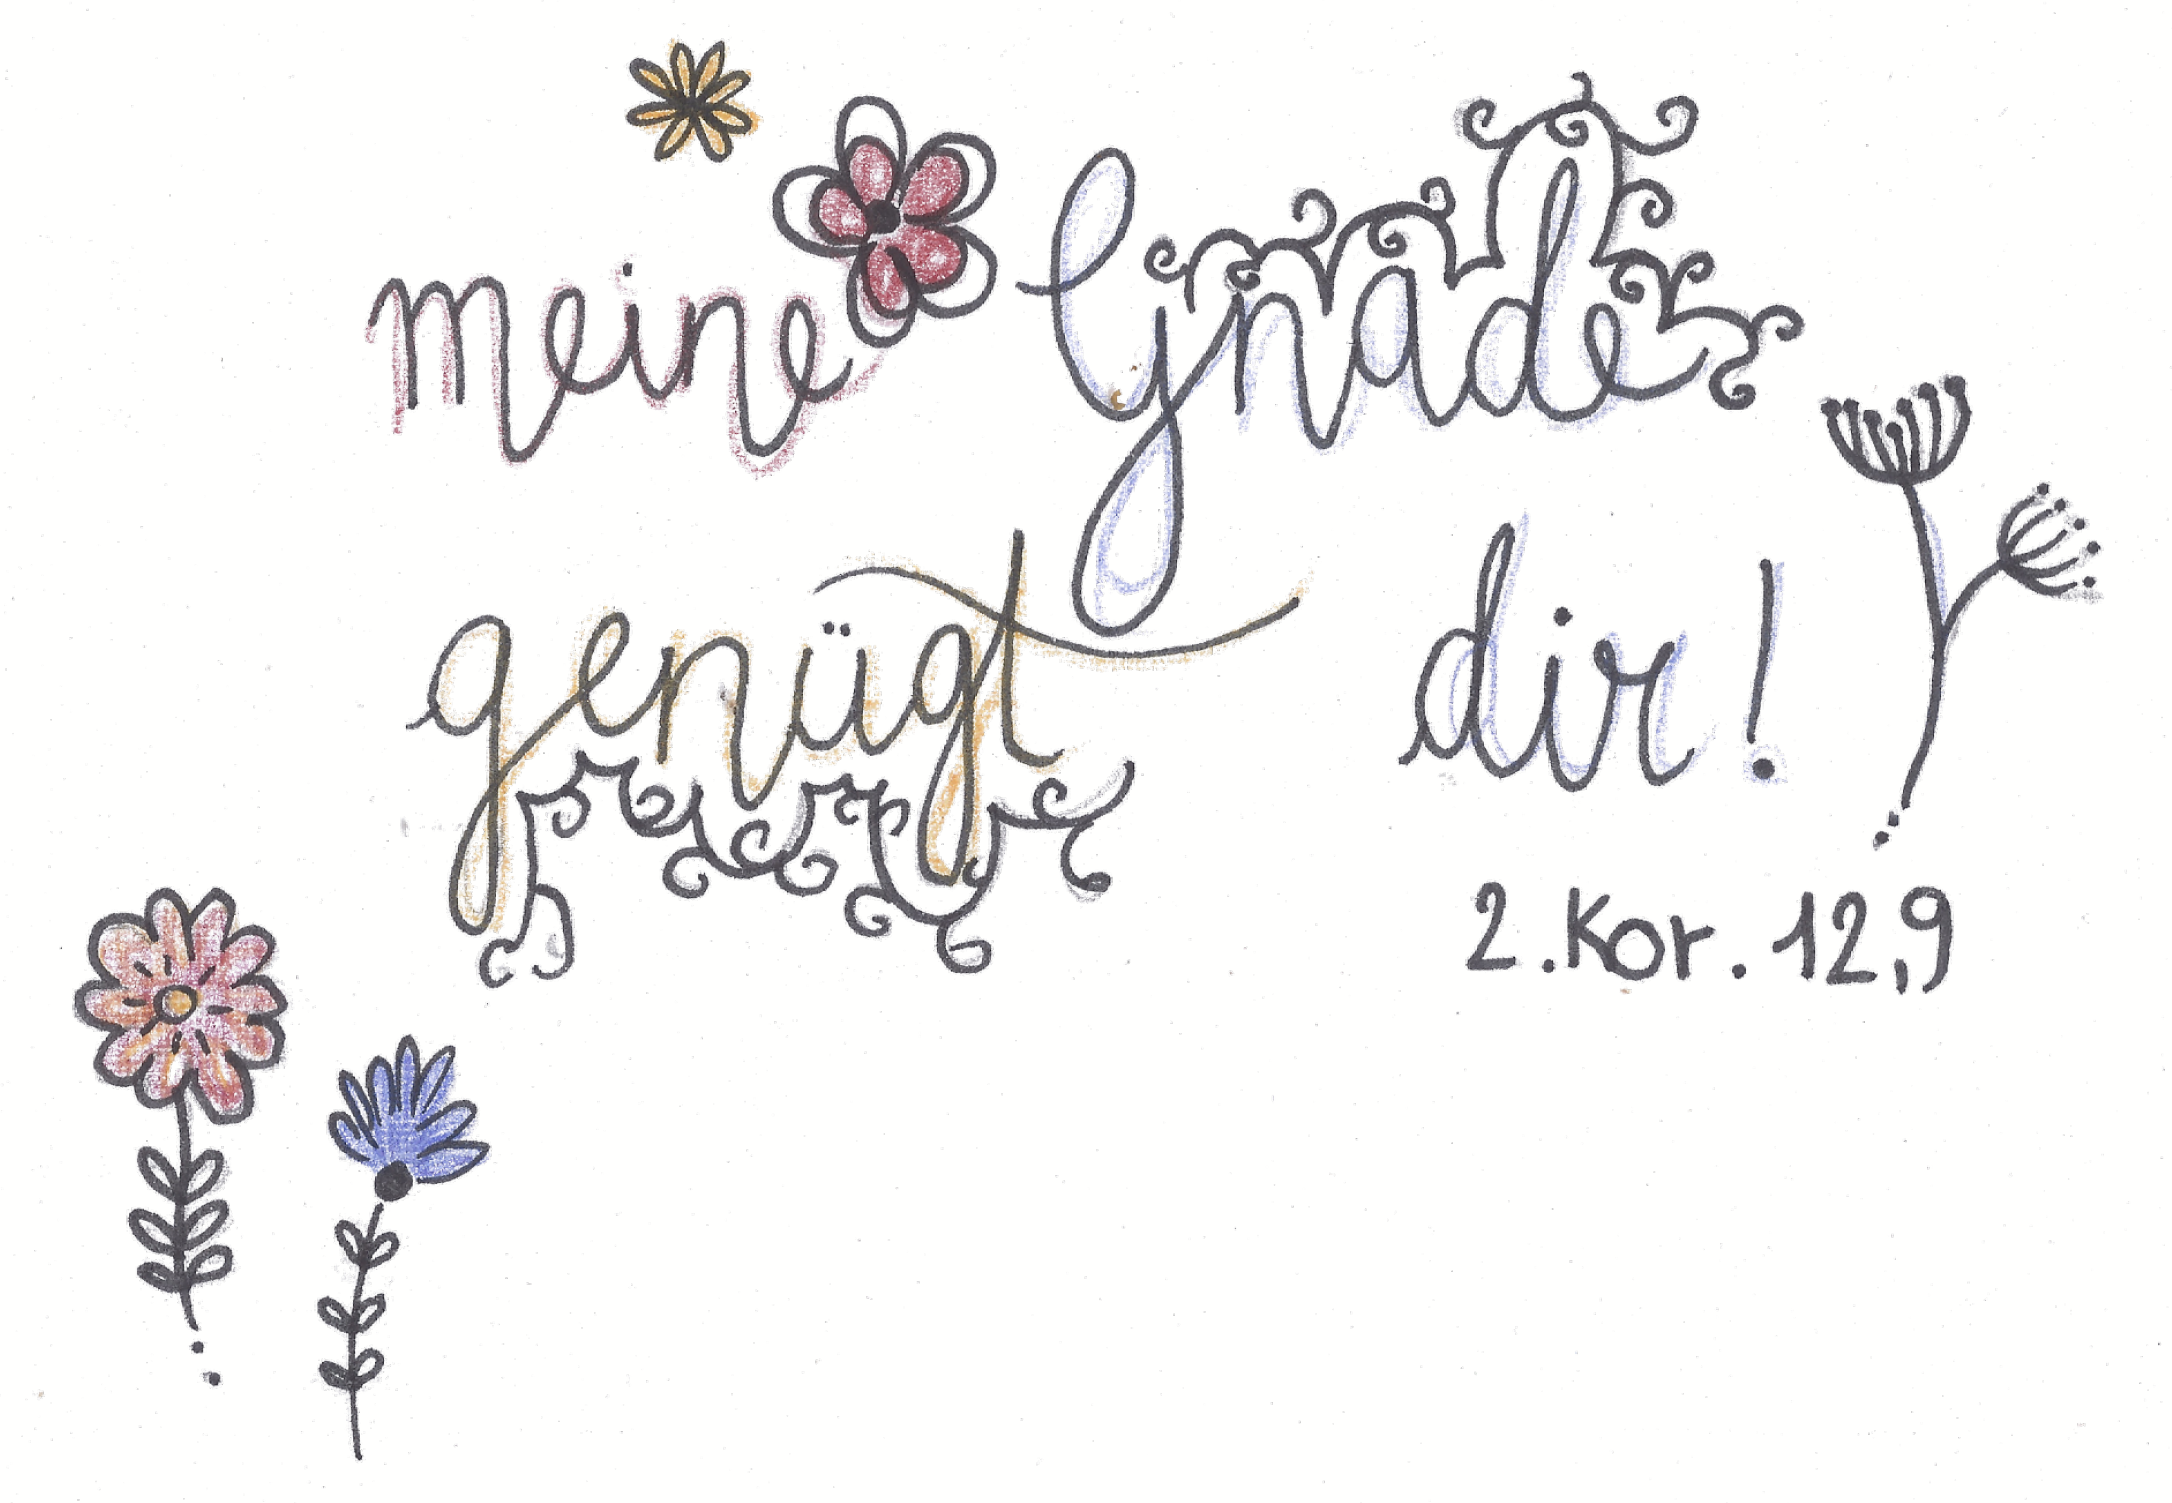 meine Gnade
genügt dir!
2. Kor. 12,9